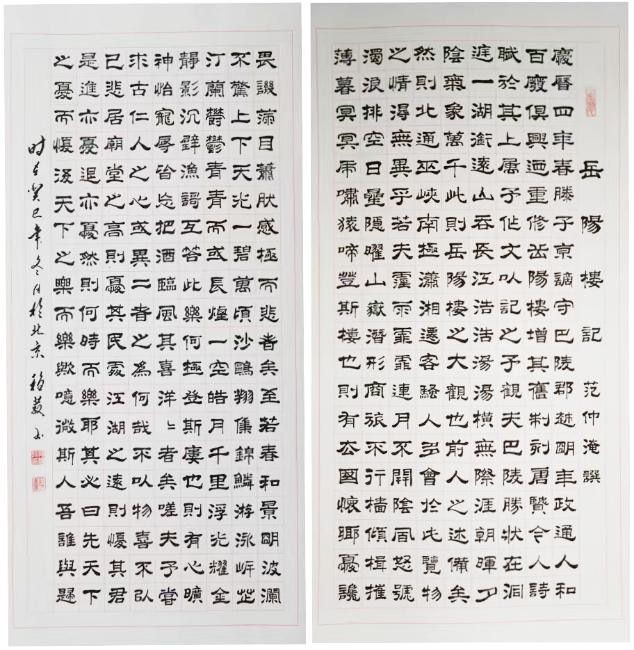 岳陽樓記 范仲淹撰
慶曆四年春滕子京謫守巴陵郡越明年政通人和
百廢俱興迺重修岳陽樓增其舊制刻唐賢今人詩
賦於其上屬予作文以記之予觀夫巴陵勝狀在洞
庭一湖銜遠山吞長江浩浩湯湯橫無際涯朝暉夕
陰氣象萬千此則岳陽樓之大觀也前人之述備矣
然則北通巫峽南極瀟湘遷客騷人多會於此覽物
之情得無異乎若夫霪雨霏霏連月不開陰風怒號
濁浪排空日曐隱曜山嶽潛形商旅不行檣傾楫摧
薄暮冥冥虎嘯猿啼登斯樓也則有去國懷鄉憂讒
畏譏滿目蕭然感極而悲者矣至若春和景明波瀾
不驚上下天光一碧萬頃沙鷗翔集錦鱗游泳岸芷
汀蘭鬱鬱青青而或長煙一空皓月千里浮光耀金
靜影沉璧漁謌互答此樂何極登斯樓也則有心曠
神怡寵辱皆忘把酒臨風其喜洋〻者矣嗟夫予嘗
求古仁人之心或異二者之為何哉不以物喜不以
已悲居廟堂之高則憂其民處江湖之遠則憂其君
是進亦憂退亦憂然則何時而樂耶其必曰先天下
之憂而憂後天下之樂而樂歟噫微斯人吾誰與歸
时在癸巳年冬月於北京 书